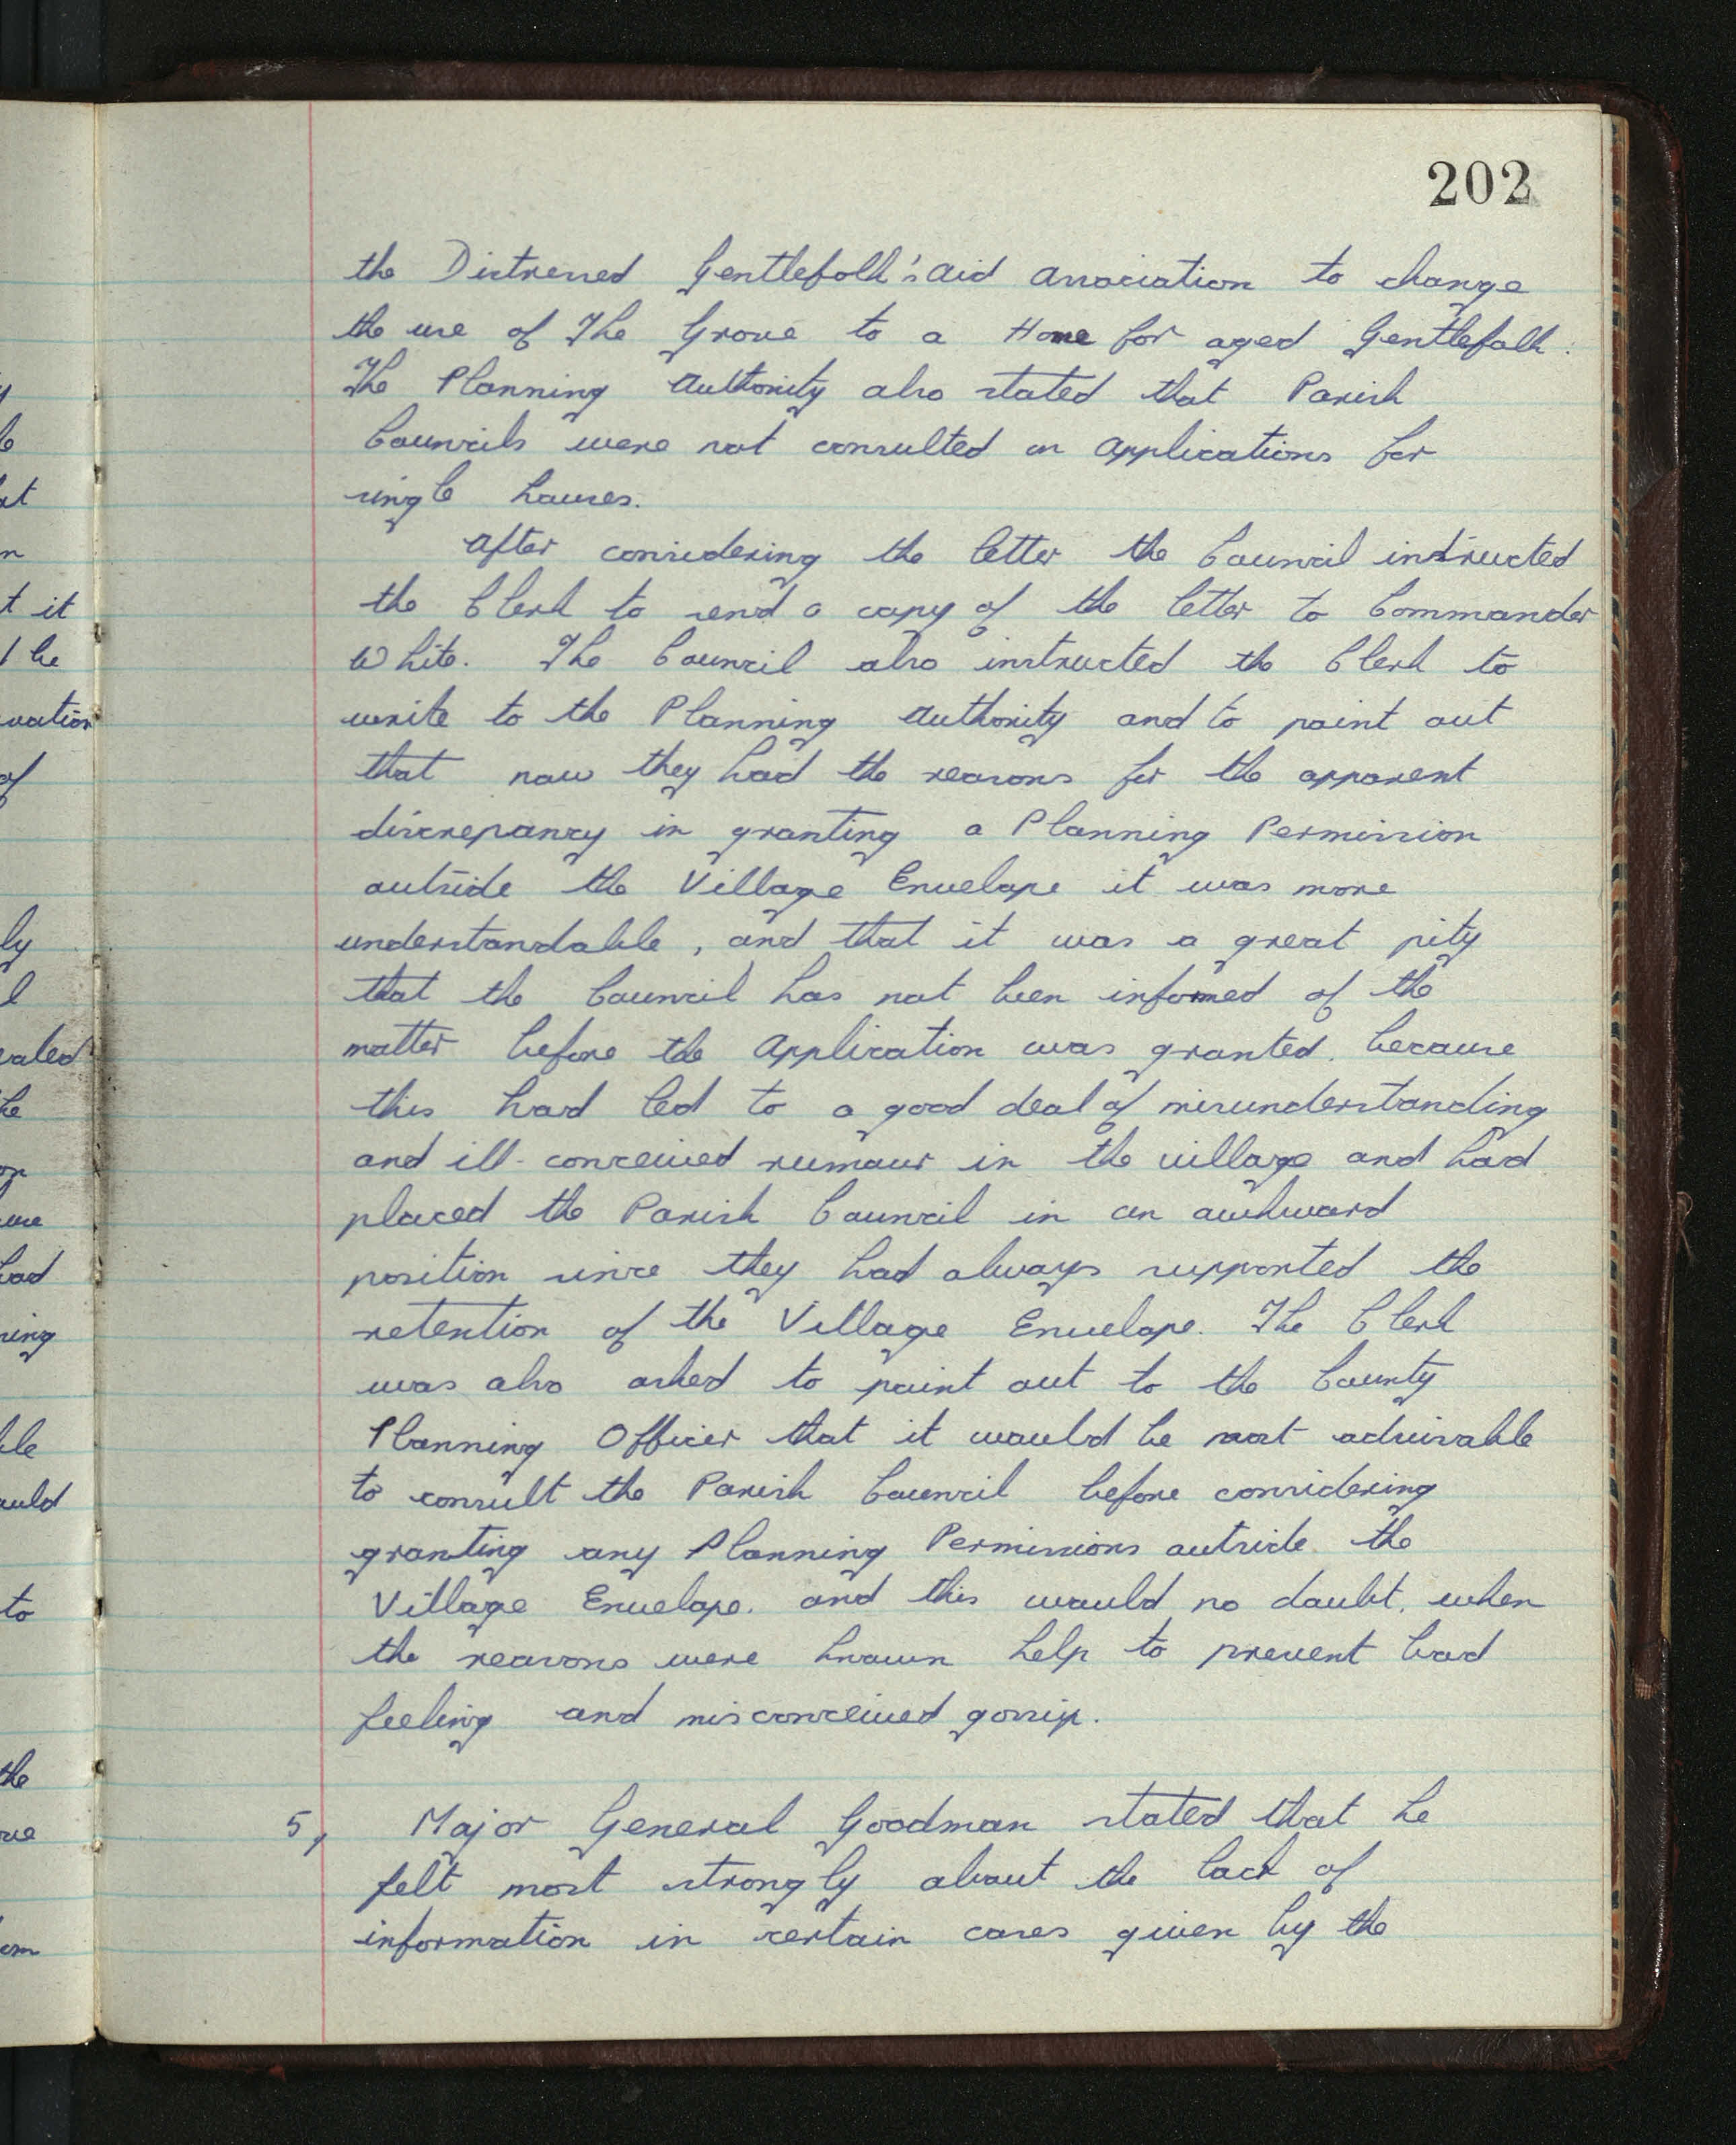 202
the Distressed Gentlefolk's Aid Association to change
the use of The Grove to a Home for aged Gentlefolk.
The Planning Authority also stated that Parish
Councils were not consulted on Applications for
single houses.
After considering the letter the Council instructed
the Clerk to send a copy of the letter to Commander
White. The Council also instructed the Clerk to
write to the Planning Authority and to point out
that now they had the reasons for the apparent
discrepancy in granting a Planning Permission
outside the Village Envelope it was more
understandable, and that it was a great pity
that the Council has not been informed of the
matter before the Application was granted. because
this had led to a good deal of misunderstanding
and ill-conceived rumour in the village and had
placed the Parish Council in an awkward
position since they had always supported the
retention of the Village Envelope. The Clerk
was also asked to point out to the County
Planning Officer that it would be most advisable
to consult the Parish Council before considering
granting any Planning Permissions outside the
Village Envelope. and this would no doubt, when
the reasons were known help to prevent bad
feeling and misconceived gossip.
5, Major General Goodman stated that he
felt most strongly about the lack of
information in certain cases given by the